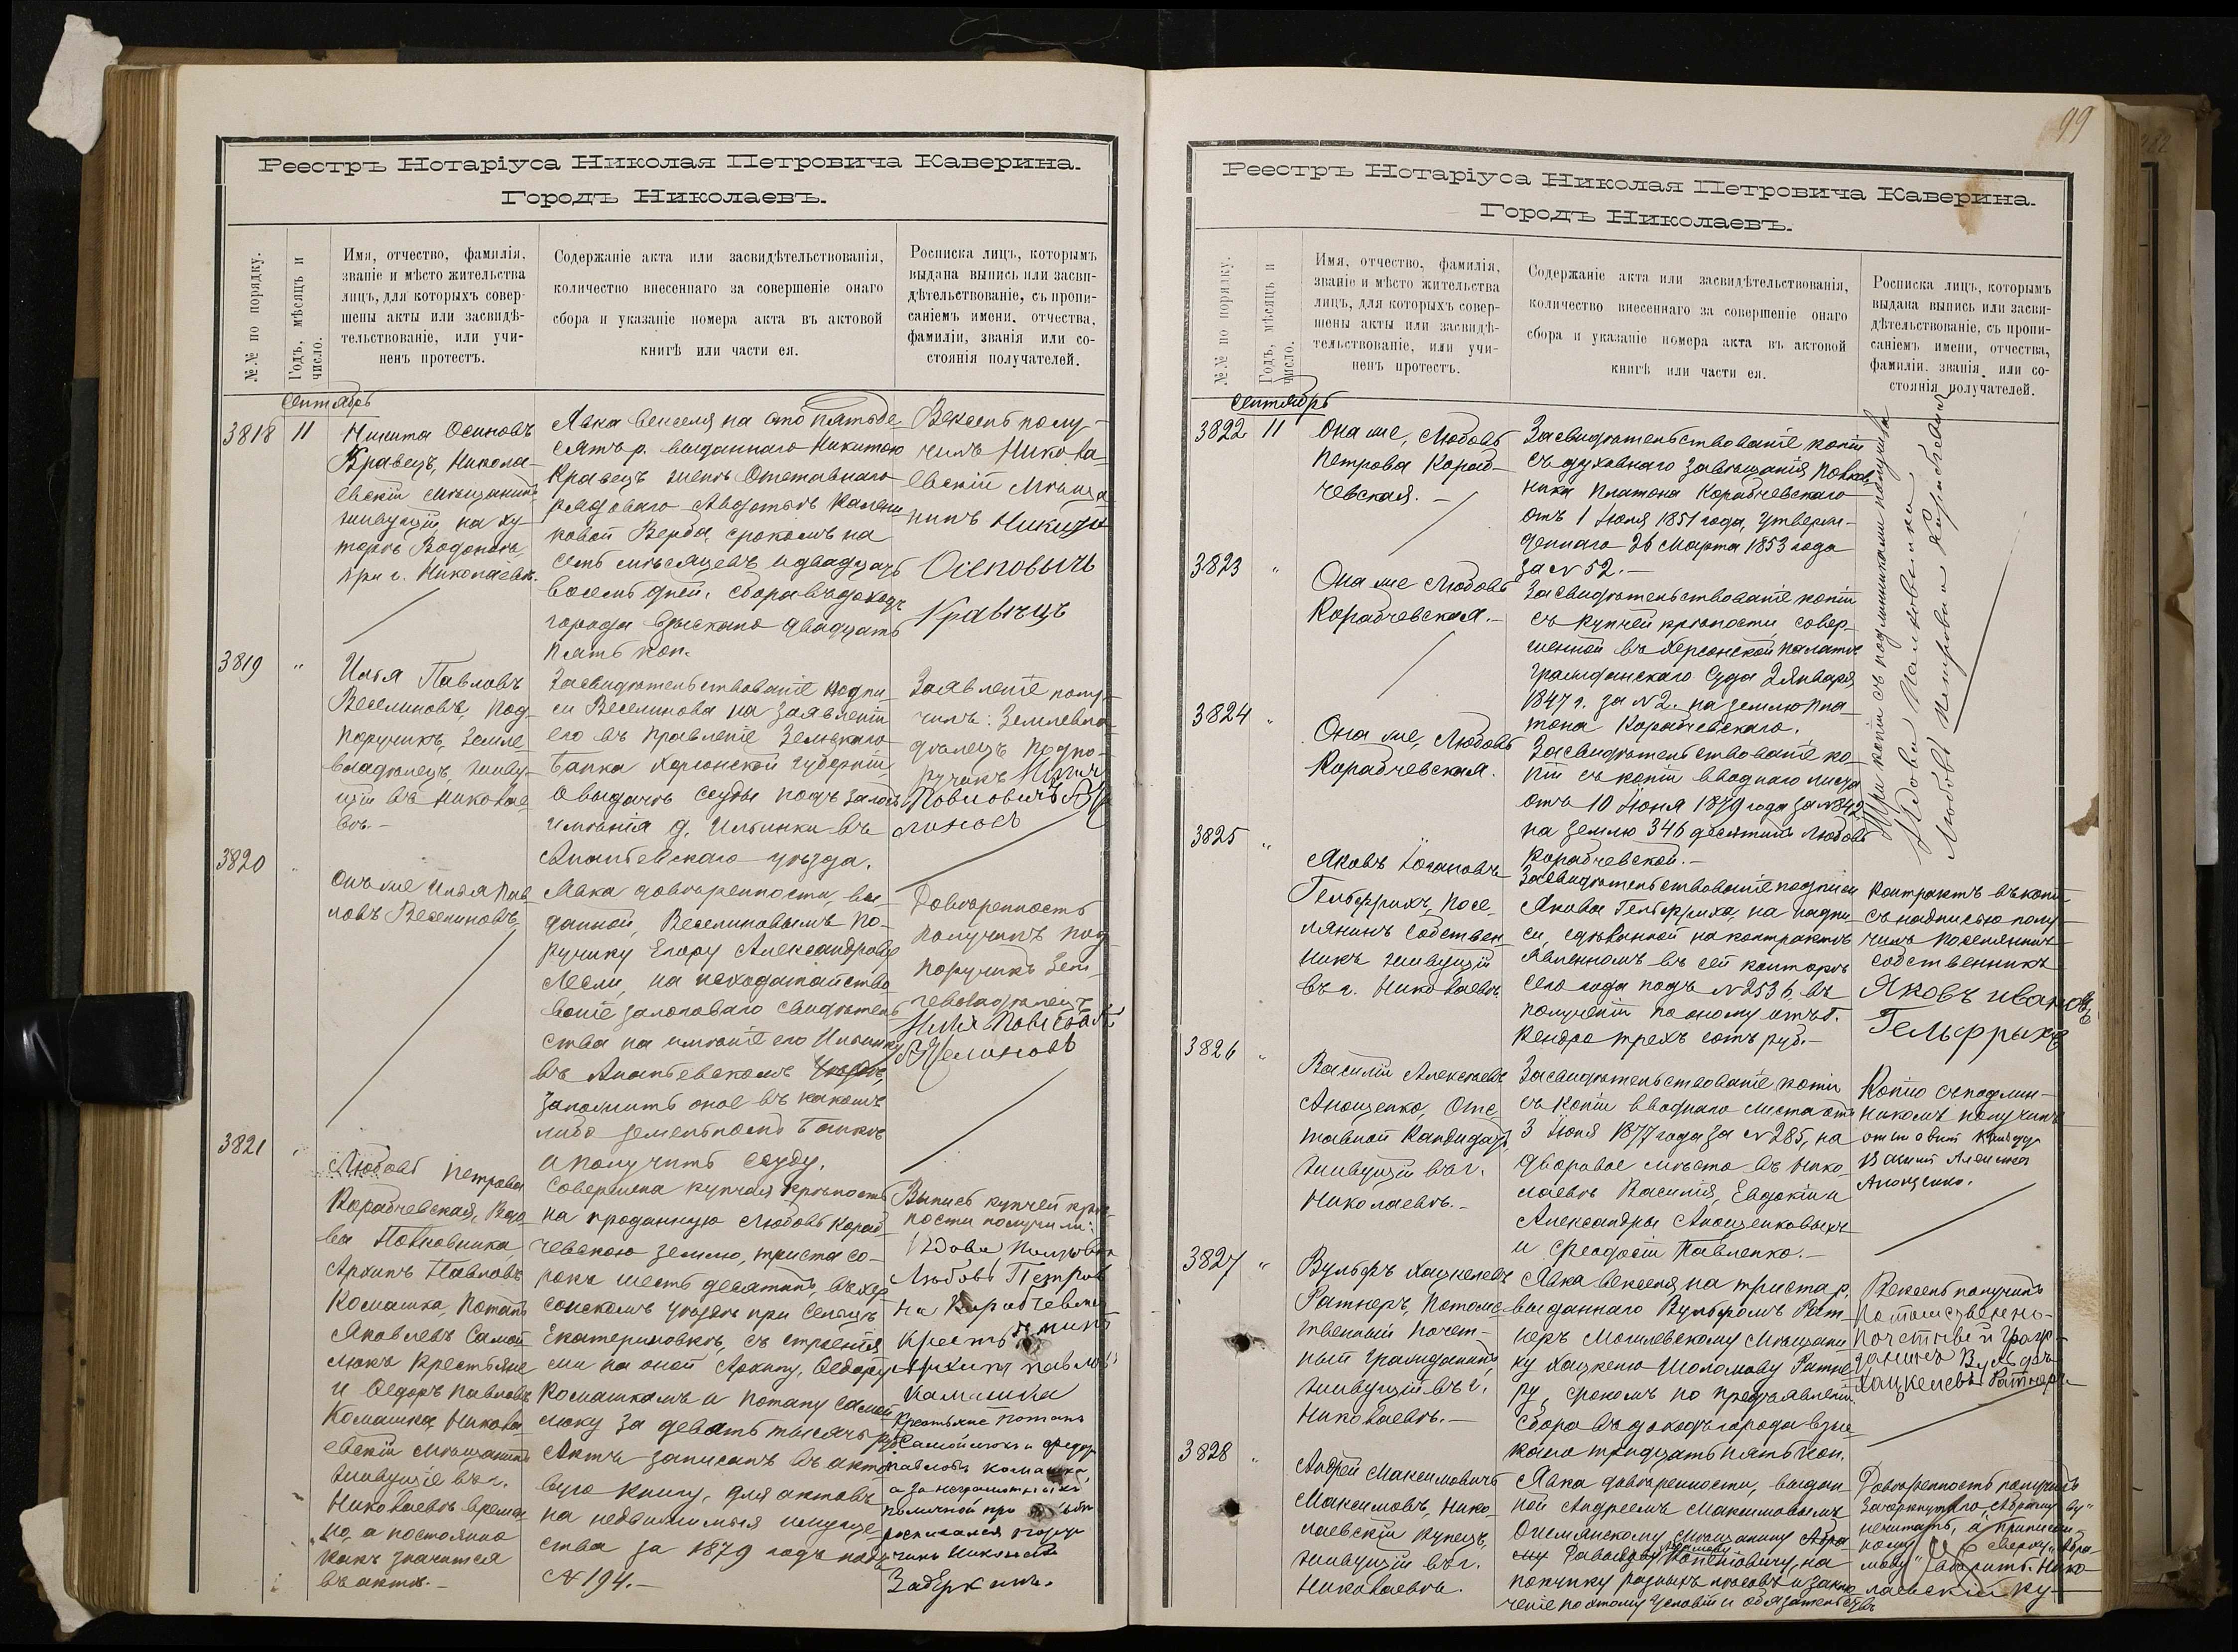 Реестръ Нотаріуса Николая Петровича Каверина.
Городъ Николаевъ.
№№ по порядку.
Годъ, мѣсяцъ и
число.
Имя, отчество, фамилія,
званіе и мѣсто жительства
лицъ, для которыхъ совер-
шены акты или засвидѣ-
тельствованіе, или учи-
ненъ протестъ.
Содержаніе акта или засвидѣтельствованія,
количество внесеннаго за совершеніе онаго
сбора и указаніе номера акта въ актовой
книгѣ или части ея.
Росписка лицъ, которымъ
выдана выпись или засви-
дѣтельствованіе, съ пропи-
саніемъ имени, отчества,
фамиліи, званія или со-
стоянія получателей.
Сентябрь
3818
11
Никита Осиповъ
Кравецъ, Никола-
евскій мѣщанинъ
живущій на ху-
торѣ Водопоѣ,
при г. Николаевѣ.
Явка векселя на сто пятьде-
сятъ р. выданнаго Никитою
Кравецъ женѣ Отставнаго
рядоваго Авдотьѣ
Верба, срокомъ на
семь мѣсяцевъ и двадцать
восемь дней. Сбора въ доходъ
города взыскано двадцать
пять коп.
Вексель полу-
чилъ Никола-
евскій мѣща
нинъ Никита
Осиповичъ
Кравецъ
3819
"
Илья Павловъ
Веселиновъ, Под-
поручикъ, Земле-
владѣлецъ, живу-
щій въ Николае-
вѣ.-
Засвидѣтельствованіе подпи
си Веселинова на заявленіи
его въ Правленіе Земскаго
Банка Херсонской губерніи
о выдачѣ ссуды подъ залогъ
имѣнія д. Ильинки въ
Ананьевскаго уѣзда.
Заявленіе полу-
чилъ: Землевла-
дѣлецъ Подпо-
ручикъ Илья
Павловичъ Ве
линовъ
3820
"
Онъ же Илья Пав
ловъ Веселиновъ,
Явка довѣренности, вы-
данной, Веселиновымъ По-
ручику Егору Александрову
Лесли, на исходатайство
ваніе залоговаго свидѣтель
ства на имѣніе его Ильинку
въ Ананьевскомъ Уѣздѣ,
заложить оное въ какомъ
либо земельномъ Банкѣ
и получить ссуду.
Довѣренность
получилъ под-
поручикъ Зем-
левладѣлецъ
Илья
Веселиновъ
3821
"
Любовь Петрова
Корабчевская, Вдо-
ва Полковника,
Архипъ Павловъ
Комашка, Потапъ
Яковлевъ Самой-
люкъ Крестьяне
и Ѳедоръ Павловъ
Комашка, Никола
евскій мѣщанинъ
живущіе въ г.
Николаевѣ времен
но, а постоянно
какъ значится
въ актѣ.-
Совершена купчая крѣпость
на проданную Любовь Кораб-
чевскою землю, триста со-
рокъ шесть десятинъ, въ Хер
сонскомъ уѣздѣ при Сельцѣ
Екатериновкѣ, съ строенія
ми на оной Архипу, Ѳедору
Комашкамъ и Потапу Самой
люку за девять тысячъ руб.
Актъ записанъ въ акто
вую книгу, для актовъ
на недвижимыя имуще
ства за 1879 годъ подъ
№ 194.-
Выпись купчей крѣ-
пости получили:
Вдова Полковника
Любовь Петров
на Карабчевская
Крестьянинъ
Архипъ Павловъ
Камашка
Крестьяне Потапъ
Самойлюкъ и Федоръ
Павловъ Комашка,
а за неграмотныхъ
росписался
3822
99
Реестръ Нотаріуса Николая Петровича Каверина.
Городъ Николаевъ.
№№ по порядку.
Годъ, мѣсяцъ и
число.
Имя, отчество, фамилія,
званіе и мѣсто жительства
лицъ, для которыхъ совер-
шены акты или засвидѣ-
тельствованіе, или учи-
ненъ протестъ.
Содержаніе акта или засвидѣтельствованія,
количество внесеннаго за совершеніе онаго
сбора и указаніе номера акта въ актовой
книгѣ или части ея.
Росписка лицъ, которымъ
выдана выпись или засви-
дѣтельствованіе, съ пропи-
саніемъ имени, отчества,
фамиліи, званія или со-
стоянія получателей.
Сентябрь
11
Она же, Любовь
Петрова Кораб-
чевская.-
Засвидѣтельствованіе копіи
съ духовнаго завѣщанія Полков-
ника Платона Корабчевскаго
отъ 1 Іюня 1851 года, утверж-
деннаго 26 Марта 1853 года
за № 52.-
Три копіи съ подлинниками получила
Вдова Полковника
Любовь Петровна Карабчевская
3823
"
Она же Любовь
Корабчевская.-
Засвидѣтельствованіе копіи
съ купчей крѣпости, совер-
шенной въ Херсонской палатѣ
Гражданскаго Суда 2 Января
1847 г. за № 2. на землю Пла-
тона Корабчевскаго.
3824
"
Она же, Любовь
Корабчевская.
Засвидѣтельствованіе ко-
піи съ копіи вводнаго листа
отъ 10 Іюня 1879 года за № 842,
на землю 346 десятинъ Любовь
Корабчевской.-
3825
"
Яковъ Іогановъ
Гельфрихъ, Посе-
лянинъ собствен-
никъ живущій
въ г. Николаевѣ.
Засвидѣтельствованіе подписи
Якова Гельфриха, на надпи
си, сдѣланной на контрактѣ
явленномъ въ сей конторѣ
сего года подъ № 2536, въ
полученіи по оному отъ Г.
Кендра трехъ сотъ руб.-
Контрактъ въ копіи
съ надписью полу-
чилъ поселянинъ
собственникъ
Яковъ Ивановъ
Гельфрыхъ
3826
"
Василій Алексѣевъ
Анощенко, Отс-
тавной Кандидатъ,
живущій въ г.
Николаевѣ.-
Засвидѣтельствованіе копіи
съ копіи вводнаго листа отъ
3 Іюня 1877 года за № 285, на
дворовое мѣсто въ Нико-
лаевѣ Василія, Евдокіи и
Александры Анощенковыхъ
и Ѳеодосіи Павленко.-
Копію съ подлин-
никомъ получилъ
Василій Алексѣев
Анощенко.
3827
"
Вульфъ Хацкелевъ
Ратнеръ, Потомс-
твенный почет-
ный гражданинъ,
живущій въ г.
Николаевѣ.-
Явка векселя, на триста р.
выданнаго Вульфомъ Рат-
неръ Могилевскому мѣщани
ну Хацкелю Шоломову Ратне
ру, срокомъ по предъявленіи.
Сбора въ доходъ города взыс
кано тридцать пять коп.
Вексель получилъ
потомственно-
почетный граж-
данинъ Вульфъ
Хацкелевъ Ратнеръ
3828
"
Андрей Максимовичъ
Максимовъ, Нико-
лаевскій купецъ,
живущій въ г.
Николаевѣ.
Явка довѣренности, выдан
ной Андреемъ Максимовымъ
мѣщанину Абра
на
покупку разныхъ лѣсовъ и заклю-
ченіе по этому условій и обязательствъ
Довѣренность получилъ
Зачеркнутаго
нечитать, а приписан
ному сверху "Абра-
мову" вѣрить. Нико-
лаевскій ку-